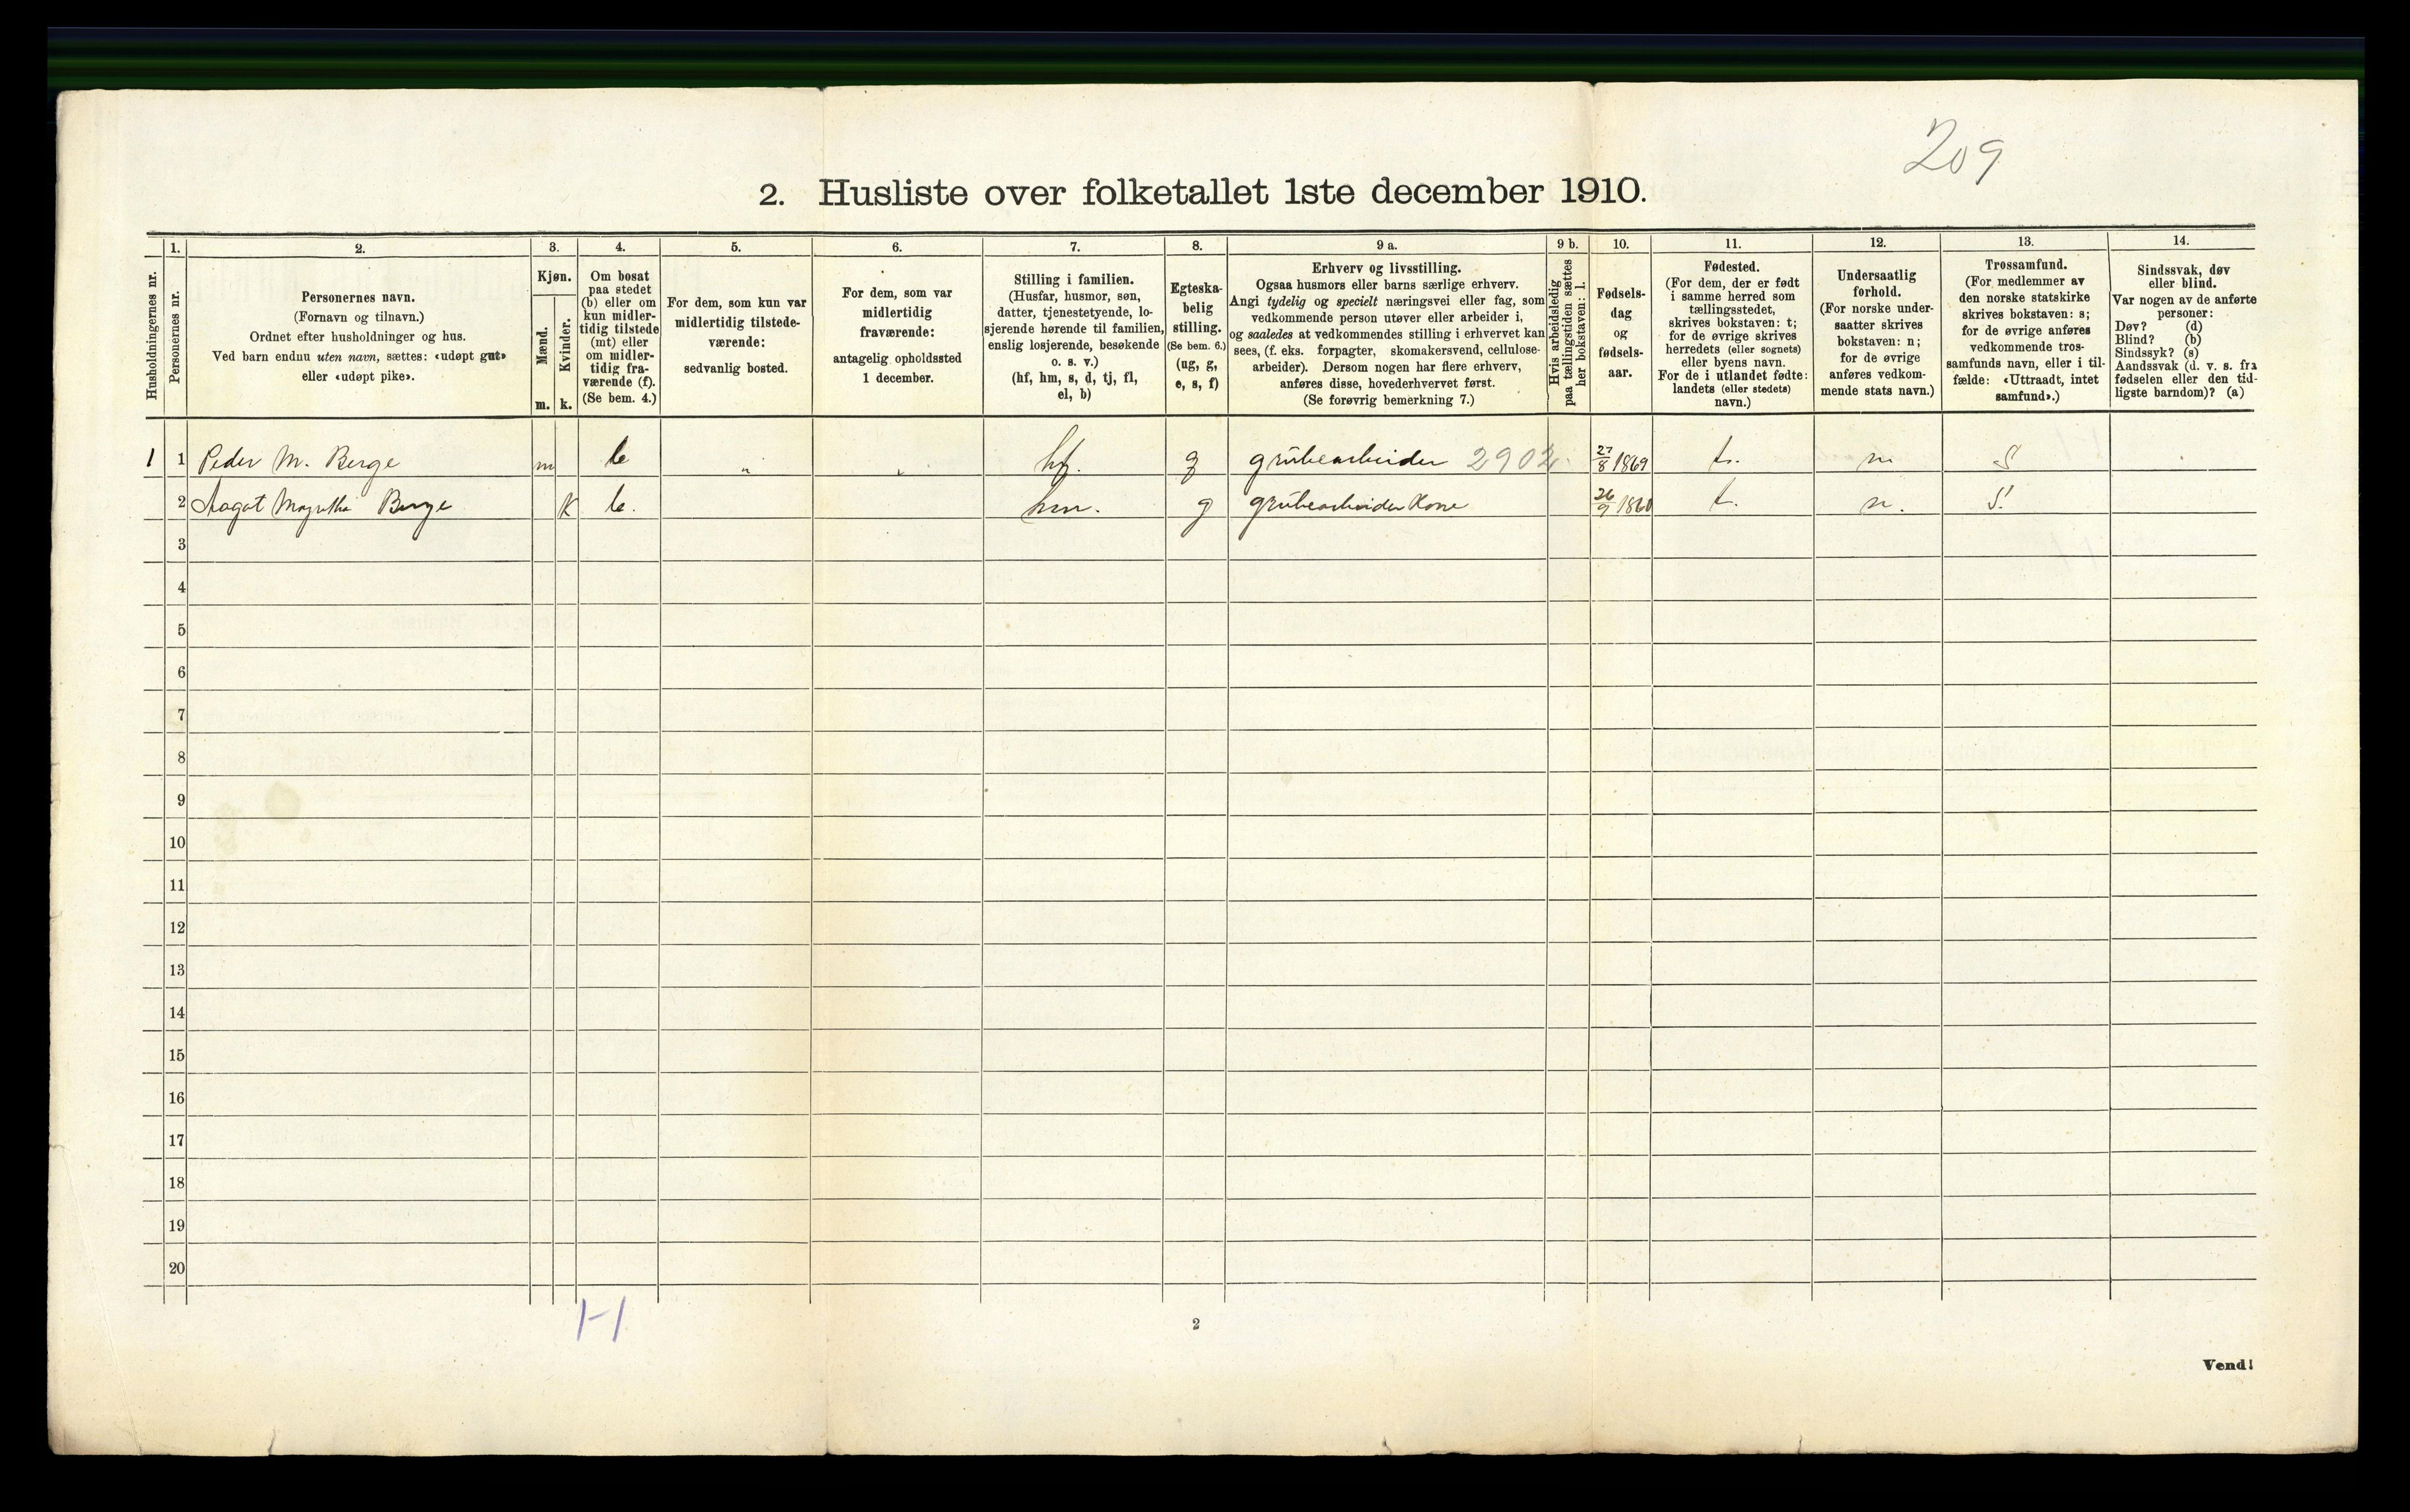 209
2. Husliste over folketallet 1ste december 1910.
Husholdningernes nr.
1.
Personernes nr.
2.
Personernes navn.
(Fornavn og tilnavn.)
Ordnet efter husholdninger og hus.
Ved barn endnu uten navn, sættes: «udøpt gut»
eller «udøpt pike».
3.
Kjøn.
Mænd.
m.
Kvinder.
k.
4.
Om bosat
paa stedet
(b) eller om
kun midler-
tidig tilstede
(mt) eller
om midler-
tidig fra-
værende (f).
(Se bem. 4.)
5.
For dem, som kun var
midlertidig tilstede-
værende:
sedvanlig bosted.
6.
For dem, som var
midlertidig
fraværende:
antagelig opholdssted
1 december.
7.
Stilling i familien.
(Husfar, husmor, søn,
datter, tjenestetyende, lo-
sjerende hørende til familien,
enslig losjerende, besøkende
o. s. v.)
(hf, hm, s, d, tj, fl,
el, b)
8.
Egteska-
belig
stilling.
(Se bem. 6.)
(ug, g,
e, s, f)
9 a.
Erhverv og livsstilling.
Ogsaa husmors eller barns særlige erhverv.
Angi tydelig og specielt næringsvei eller fag, som
vedkommende person utøver eller arbeider i,
og saaledes at vedkommendes stilling i erhvervet kan
sees, (f. eks. forpagter, skomakersvend, cellulose-
arbeider). Dersom nogen har flere erhverv,
anføres disse, hovederhvervet først.
(Se forøvrig bemerkning 7.)
9 b.
Hvis arbeidsledig
paa tællingstiden sættes
her bokstaven: l.
10.
Fødsels-
dag
og
fødsels-
aar.
11.
Fødested.
(For dem, der er født
i samme herred som
tællingsstedet,
skrives bokstaven: t;
for de øvrige skrives
herredets (eller sognets)
eller byens navn.
For de i utlandet fødte:
landets (eller stedets)
navn.)
12.
Undersaatlig
forhold.
(For norske under-
saatter skrives
bokstaven: n;
for de øvrige
anføres vedkom-
mende stats navn.)
13.
Trossamfund.
(For medlemmer av
den norske statskirke
skrives bokstaven: s;
for de øvrige anføres
vedkommende tros-
samfunds navn, eller i til-
fælde: «Uttraadt, intet
samfund».)
14.
Sindssvak, døv
eller blind.
Var nogen av de anførte
personer:
Døv? (d)
Blind? (b)
Sindssyk? (s)
Aandssvak (d. v. s. fra
fødselen eller den tid-
ligste barndom)? (a)
1 1 Peder M. Berge m b " " hf. g grubearbeider 2902 27/8 1869 t. n S
2 Aagot Magretha Berge K b. hm. g grubearbeider Kone 26/9 1860 t. n. S.
3
4
5
6
7
8
9
10
11
12
13
14
15
16
17
18
19
20
1-1
2
Vend!